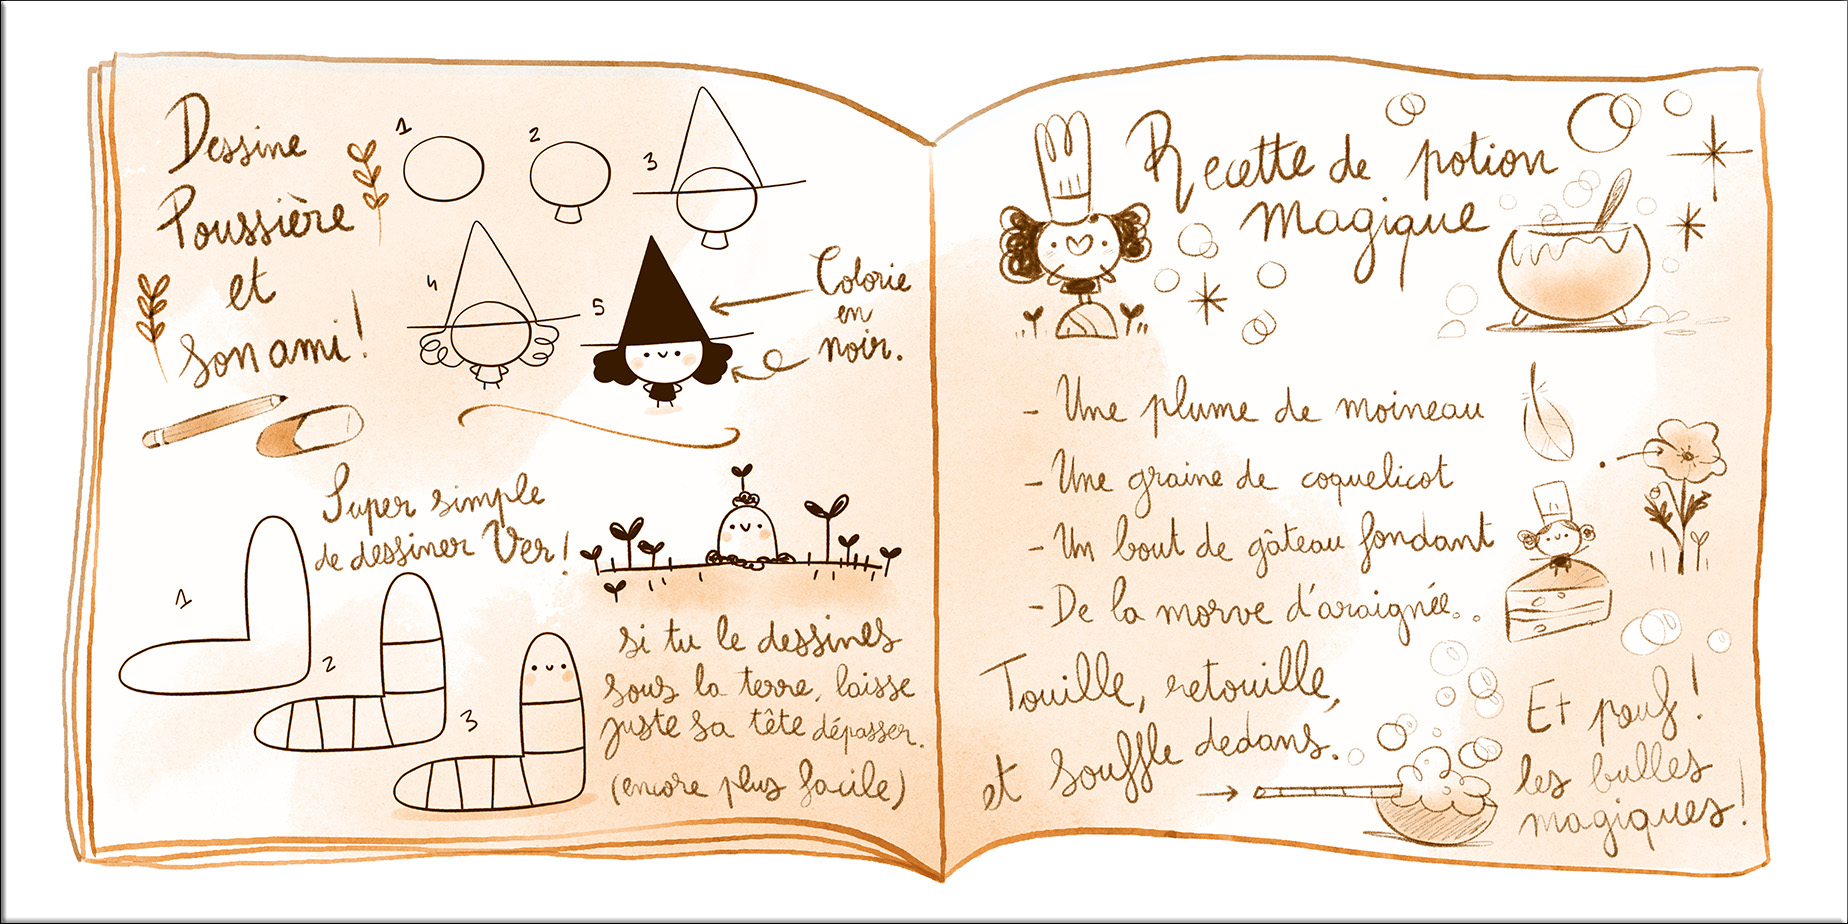 Dessine
Poussière
et
son ami !
1
2
3
4
5
Colorie
en
noir.
Super simple
de dessiner Ver !
1
2
3
si tu le dessines
sous la terre, laisse
juste sa tête dépasser.
(encore plus facile)
Recette de potion
magique
- Une plume de moineau
- Une graine de coquelicot
- Un bout de gâteau fondant
- De la morve d'araignée..
Touille, retouille,
et souffle dedans.
Et pouf !
les bulles
magiques !